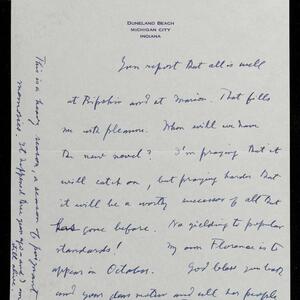 DUNELAND BEACH
MICHIGAN CITY
INDIANA
Your report that all is well
at Ripshin and at Marion. That fills
me with pleasure. When will we have
the new novel? I'm praying that it
will catch on, but praying harder that
it will be a worthy successor of all that
has gone before. No yielding to popular
standards! My own Florence is to
appear in October. God bless you both
and your dear mother and all her people
This is a heavy season, a season of poignant
memories. It happened two years and